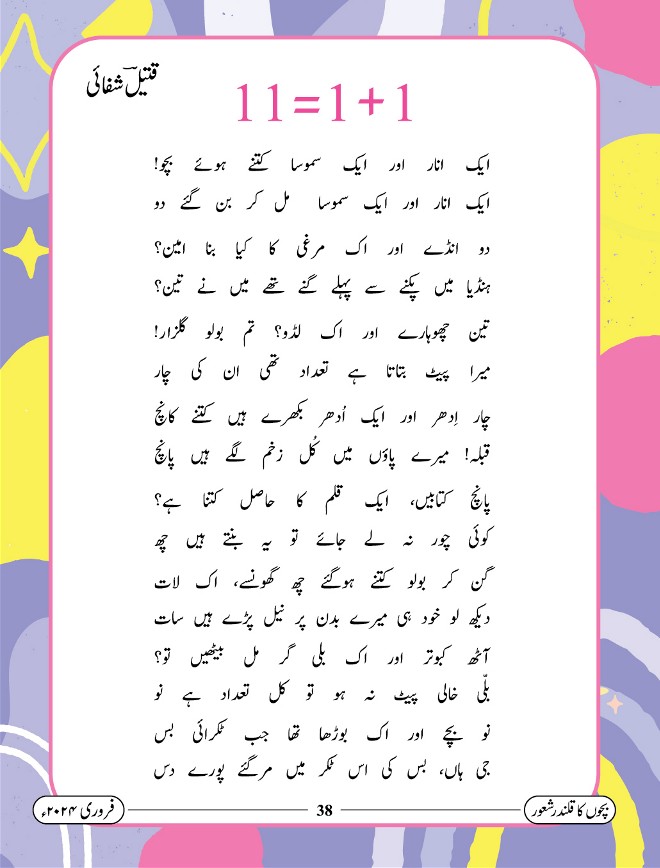 قتیل شفائی
11=1+1
ایک انار اور ایک سموسا کتنے ہوئے بچو!
ایک انار اور ایک سموسا مل کر بن گئے دو
دو انڈے اور اک مرغی کا کیا بنا امین؟
ہنڈیا میں پکنے سے پہلے گنے تھے میں نے تین؟
تین چھوہارے اور اک لڈو؟ تم بولو گلزار!
میرا پیٹ بتاتا ہے تعداد تھی ان کی چار
چار اِدھر اور ایک اُدھر بکھرے ہیں کتنے کانچ
قبلہ! میرے پاؤں میں کُل زخم لگے ہیں پانچ
پانچ کتابیں، ایک قلم کا حاصل کتنا ہے؟
کوئی چور نہ لے جائے تو یہ بنتے ہیں چھ
گن کر بولو کتنے ہوگئے چھ گھونسے، اک لات
دیکھ لو خود ہی میرے بدن پر نیل پڑے ہیں سات
آٹھ کبوتر اور اک بلی گر مل بیٹھیں تو؟
بلّی خالی پیٹ نہ ہو تو کل تعداد ہے نو
نو بچے اور اک بوڑھا تھا جب ٹکرائی بس
جی ہاں، بس کی اس ٹکر میں مرگئے پورے دس
بچوں کا قلندر شعور
38
فروری ۲۰۲۴ء